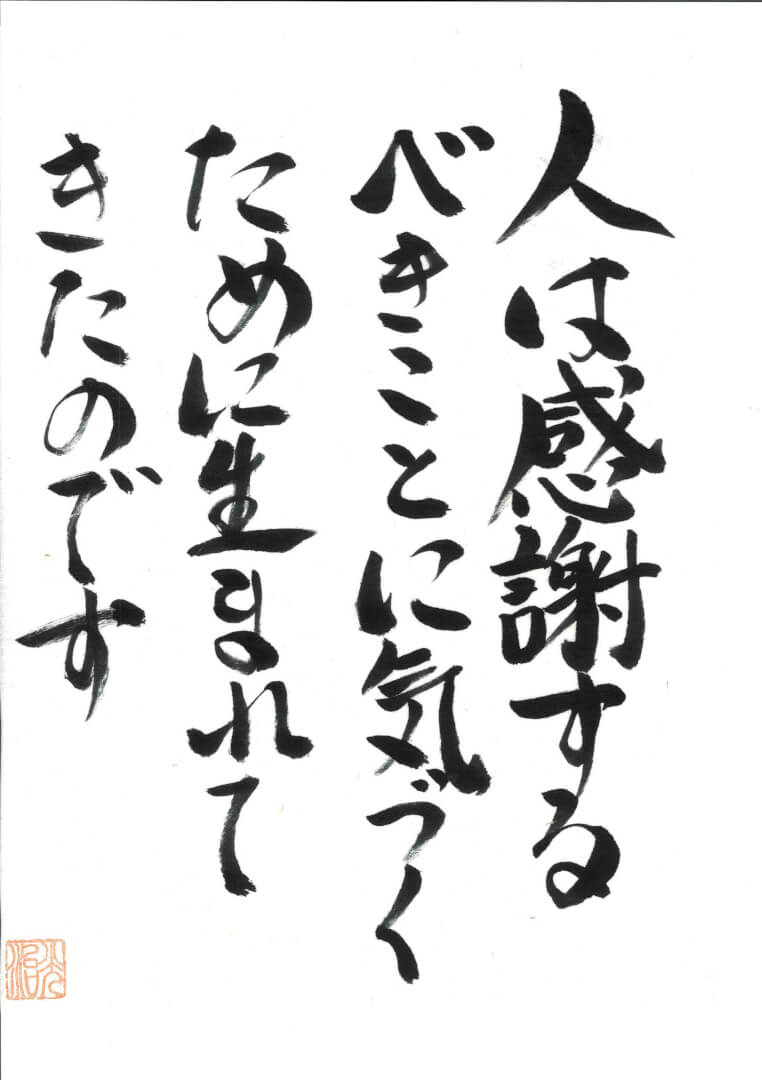 人は感謝する
べきことに気づく
ために生まれて
きたのです